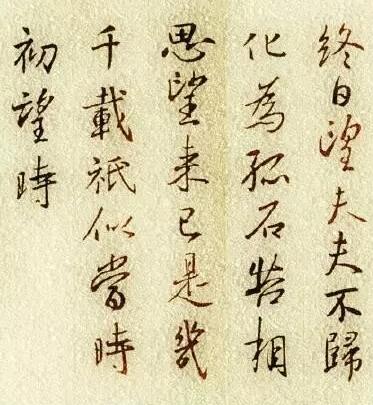 終日望夫夫不歸
化為孤石苦相
思望来已是幾
千載祇似當時
初望時